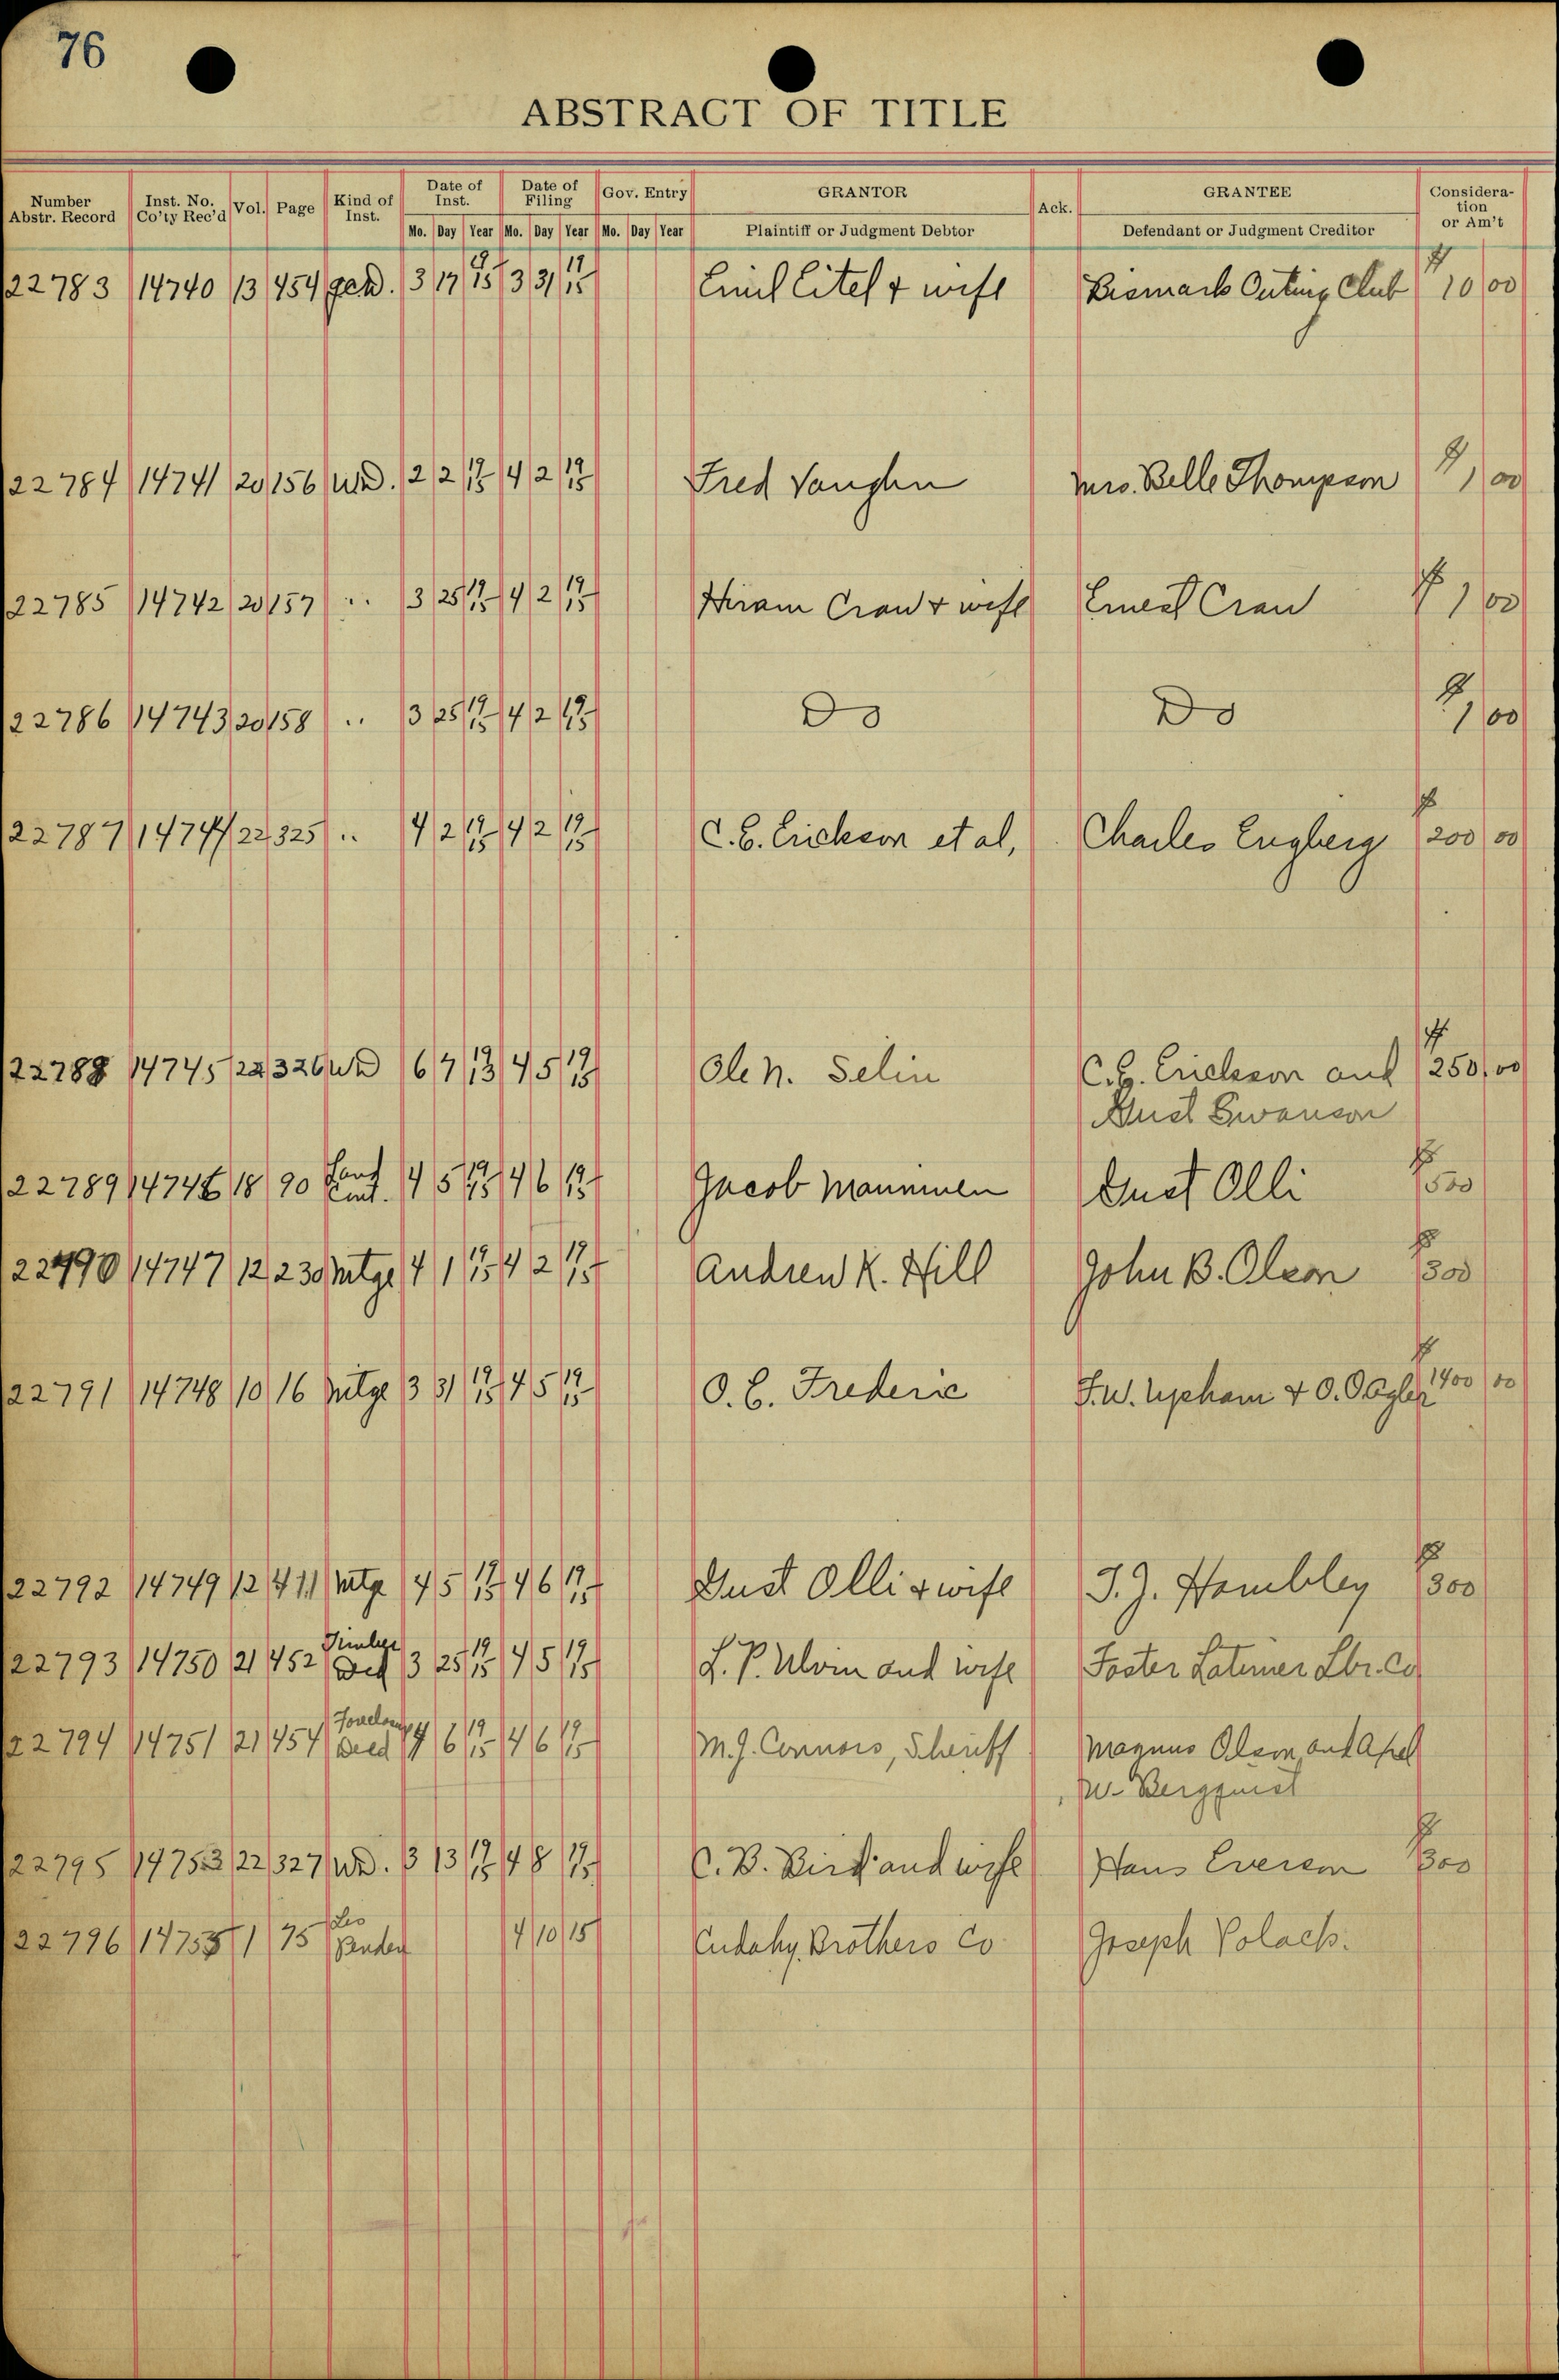 76
ABSTRACT OF TITLE
Number Abstr. Record Inst. No. Co'ty Rec'd Vol. Page Kind of Inst. Date of Inst. Date of Filing Gov. Entry GRANTOR Ack. GRANTEE Considera-tion or Am't
Mo. Day Year Mo. Day Year Mo. Day Year Plaintiff or Judgment Debtor Defendant or Judgment Creditor
22783 14740 13 454 3 17 1915 3 31 1915 Emil Eitel & wife Bismark Outing Club $10 00
22784 14741 20 156 W.D. 2 2 1915 4 2 1915 Fred Vaughn Mrs. Belle Thompson $1 00
22785 14742 20 157 .. 3 25 1915 4 2 1915 Hiram Cran & wife Ernest Cran $1 00
22786 14743 20 158 .. 3 25 1915 4 2 1915 Do Do $1 00
22787 14744 22 325 .. 4 2 1915 4 2 1915 C.E. Erickson et al, Charles Engberg $200 00
22788 14745 22 326 WD 6 7 1913 4 5 1915 Ole N. Selin C.E. Erickson and $250 00
Gust Swanson
22789 14746 18 90 Land Cont. 4 5 1915 4 6 1915 Jacob Manninen Gust Olli $500
22790 14747 12 230 Mtge 4 1 1915 4 2 1915 Andrew K. Hill John B. Olson $300
22791 14748 10 16 Mtge 3 31 1915 4 5 1915 O.C. Frederic F.W. Upham & O. O Agler $1400 00
22792 14749 12 411 Mtge 4 5 1915 4 6 1915 Gust Olli & wife J.J. Hambley $300
22793 14750 21 452 Timber Ded 3 25 1915 4 5 1915 L.P. Ulvin and wife Foster Latimer Lbr. Co
22794 14751 21 454 Deed 4 6 1915 4 6 1915 M.J. Connors, Sheriff Magnus Olson and Axel
W. Bergquist
22795 14752 22 327 WD. 3 13 1915 4 8 1915 C.B. Bird and wife Hans Everson $300
22796 14753 1 75 Les Penden 4 10 15 Cudahy Brothers Co Joseph Polack.